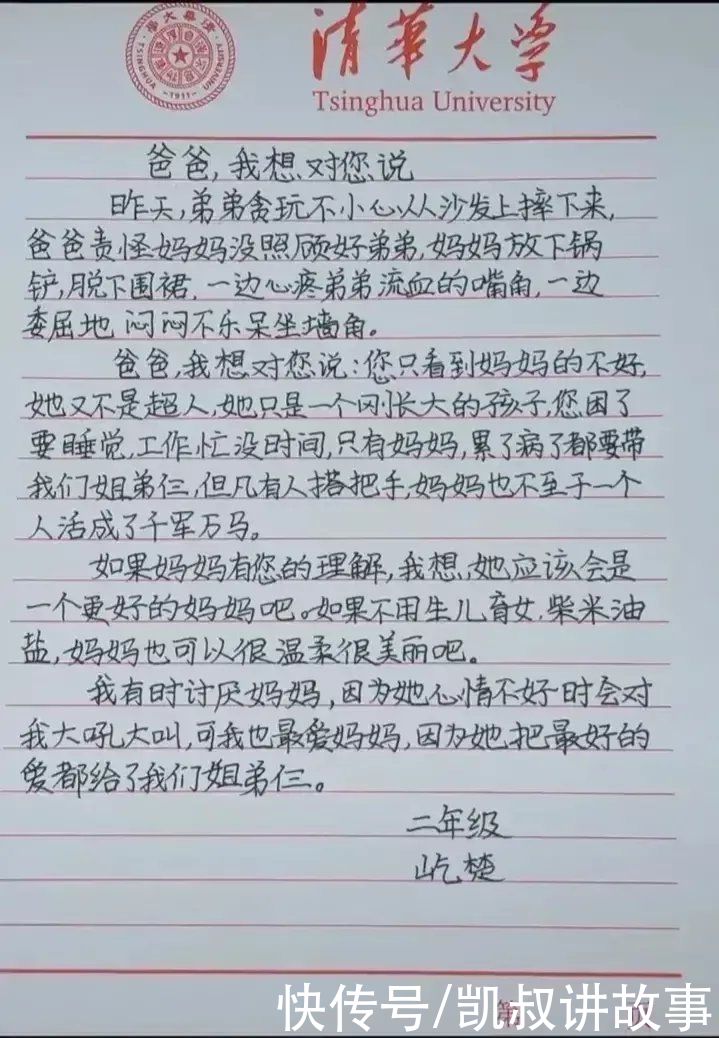 清華大学
Tsinghua University
TSINGHUA UNIVERSITY
1911
爸爸,我想对您说
昨天,弟弟贪玩不小心从沙发上摔下来,
爸爸责怪妈妈没照顾好弟弟,妈妈放下锅
铲,脱下围裙,一边心疼弟弟流血的嘴角,一边
委屈地闷闷不乐呆坐墙角。
爸爸,我想对您说:您只看到妈妈的不好,
她又不是超人,她只是一个刚长大的孩子,您困了
要睡觉,工作忙没时间,只有妈妈,累了病了都要带
我们姐弟仨,但凡有人搭把手,妈妈也不至于一个
人活成了千军万马。
如果妈妈有您的理解,我想,她应该会是
一个更好的妈妈吧。如果不用生儿育女,柴米油
盐,妈妈也可以很温柔很美丽吧。
我有时讨厌妈妈,因为她心情不好时会对
我大吼大叫,可我也最爱妈妈,因为她把最好的
爱都给了我们姐弟仨。
二年级
屹楚
第 页
快传号/凯叔讲故事